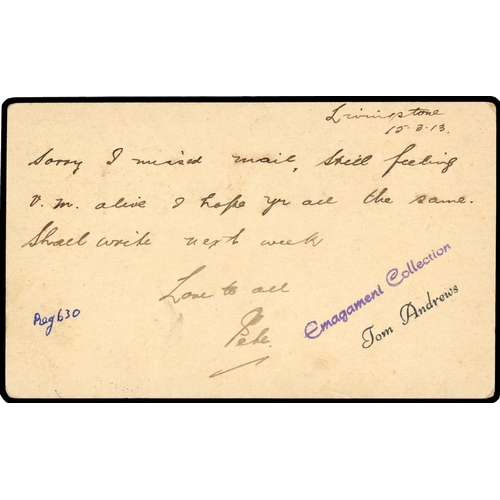 Livingstone
15.3.13.
Sorry I missed mail, Still feeling
v. m. alive I hope yr all the same.
Shall write next week
Love to all
Pete.
Reg 630
Emagament Collection
Tom Andrews